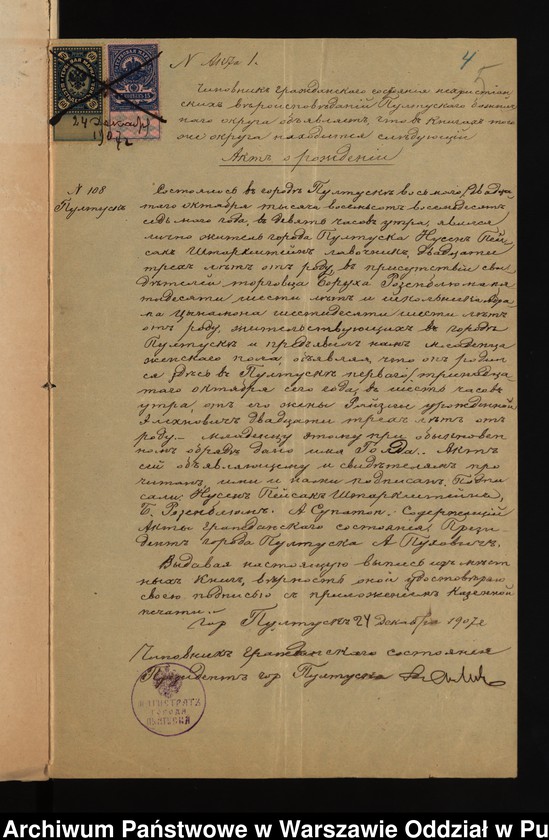 N Акта 1.
4
5
Чиновникъ гражданскаго состоянія нехристіан
скихъ вѣроисповѣданій Пултускаго
наго округа объявляетъ, что въ книгахъ того
же округа находится слѣдующій
Актъ о рожденіи
24 Декабр
1907г
N 108
Пултускъ
Состоялось въ городѣ Пултускѣ восьмого / двадца
таго октября тысяча восемьсотъ восемьдесятъ
седьмого года, въ девять часовъ утра, явился
лично житель города Пултуска Нусенъ Пей
сакъ Шпаркштейнъ лавочникъ, двадцати
трехъ лѣтъ отъ роду, въ присутствіи сви
дѣтелей торговца Боруха
десяти шести лѣтъ и школьника
шестидесяти шести лѣтъ
отъ роду, жительствующихъ въ городѣ
Пултускѣ и предъявилъ намъ младенца
женскаго пола, объявляя, что онъ родил
ся здѣсь въ Пултускѣ перваго / тринадца
таго октября сего года, въ шесть часовъ
утра, отъ его жены Райзли урожденной
двадцати трехъ лѣтъ отъ
роду. – Младенцу этому при обыкновен
номъ обрядѣ дано имя Голда. Актъ
сей объявляющему и свидѣтелямъ про
читанъ, ими и нами подписанъ. Подпи
сали: Нусенъ Пейсакъ Шпаркштейнъ,
Б. Розенблюмъ. А Супатон. Содержащій
Акты гражданскаго состоянія Прези
дентъ города Пултуска А Пуловичъ.
Выдавая настоящую выпись изъ мѣст
ныхъ книгъ, вѣрность оной удостовѣряю
своею подписью съ приложеніемъ казенной
печати.
гор Пултускъ 24 декабря 1907г
Чиновникъ гражданскаго состоянія
Президентъ гор Пултуска
МАГИСТРАТЪ
ГОРОДА
ПУЛТУСКА
Archiwum Państwowe w Warszawie Oddział w Pu